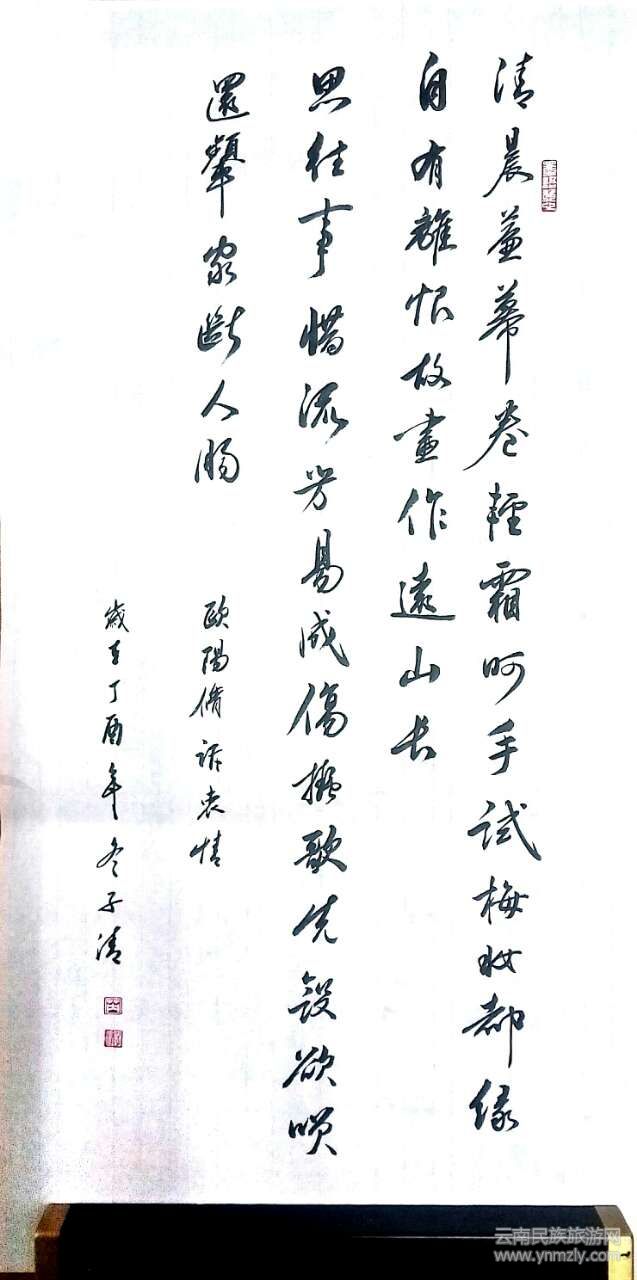 清晨簾幕卷輕霜呵手試梅妝都緣
自有離恨故畫作遠山長
思往事惜流芳易成傷擬歌先斂欲咲
還顰冣斷人腸
歐陽脩訴衷情
歲在丁酉年冬子清
云南民族旅游网
www.ynmzly.com